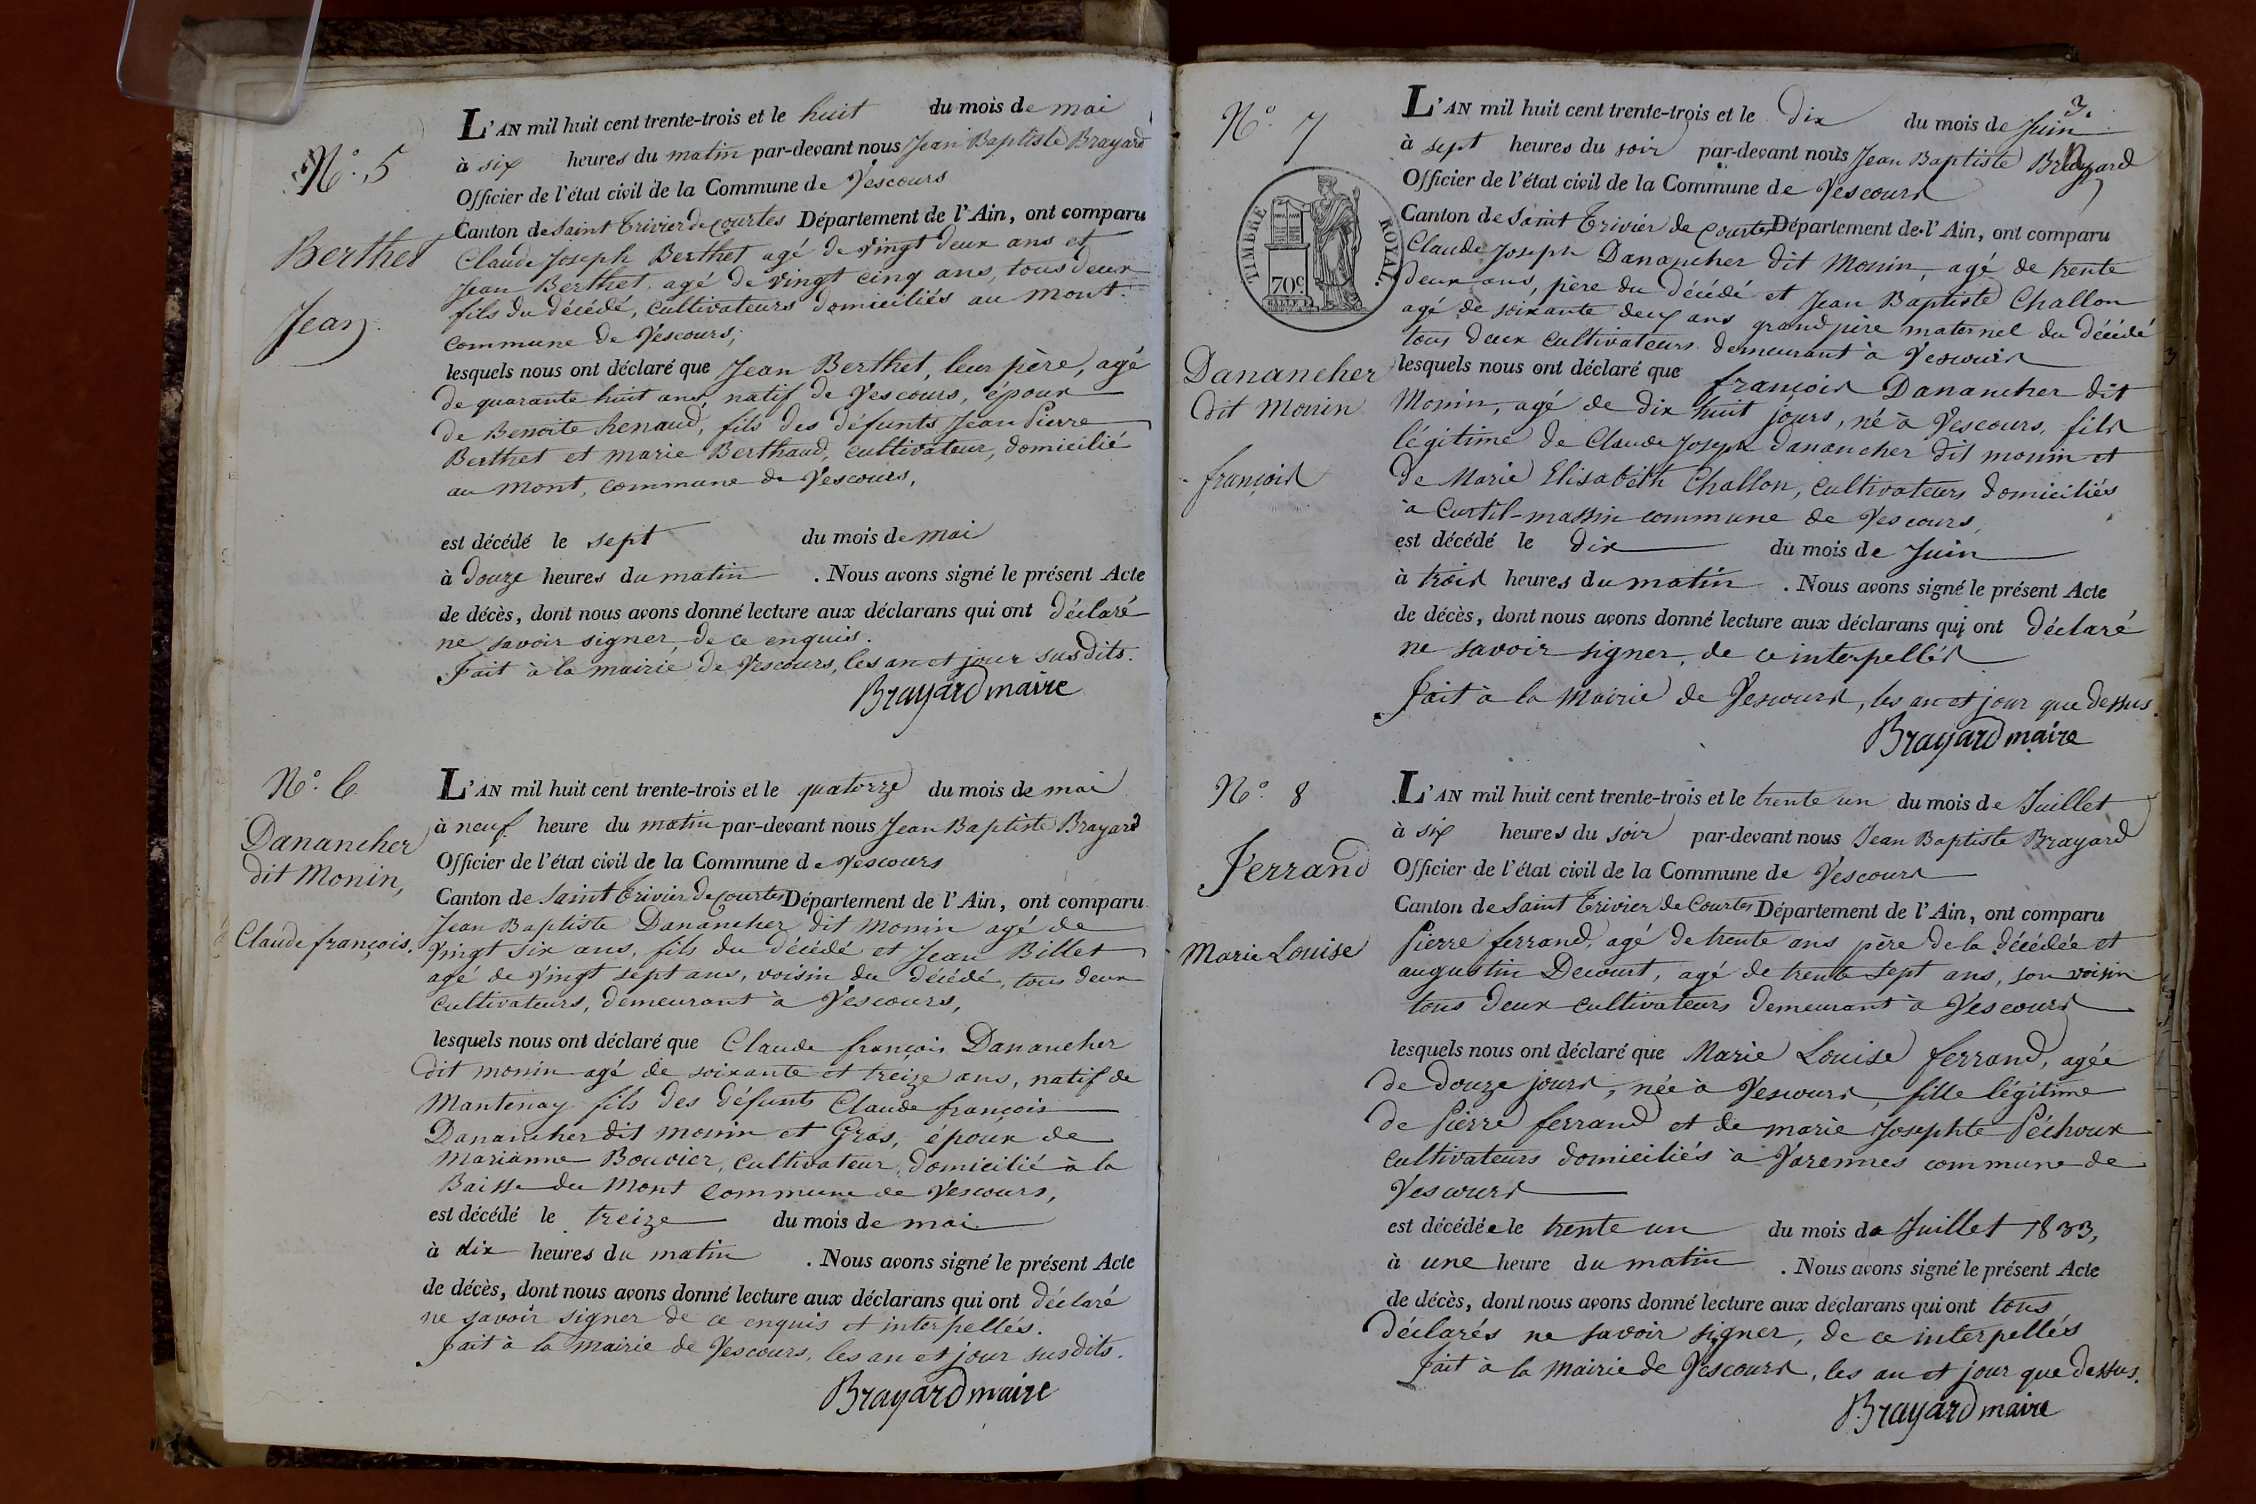 N.° 5
Berthet
Jean
L'AN mil huit cent trente-trois et le huit du mois de mai
à six heures du matin par-devant nous Jean Baptiste Brayard
Officier de l'état civil de la Commune de Vescours
Canton de Saint Trivier de Courtes Département de l'Ain, ont comparu
Claude Joseph Berthet agé de vingt deux ans et
Jean Berthet, agé de vingt cinq ans, tous deux
fils du décédé, cultivateurs domiciliés au Mont
commune de Vescours,
lesquels nous ont déclaré que Jean Berthet, leur père, agé
de quarante huit ans, natif de Vescours, époux
de Benoite Renaud, fils des défunts Jean Pierre
Berthet et marie Berthaud, cultivateur, domicilié
au Mont, commune de Vescours,
est décédé le sept du mois de mai
à douze heures du matin . Nous avons signé le présent Acte
de décès, dont nous avons donné lecture aux déclarans qui ont déclaré
ne savoir signer, de ce enquis.
Fait à la mairie de Vescours, les an et jour susdits.
Brayard maire
N.° 6
Danancher
dit Monin,
Claude françois.
L'AN mil huit cent trente-trois et le quatorze du mois de mai
à neuf heure du matin par-devant nous Jean Baptiste Brayard
Officier de l'état civil de la Commune de Vescours
Canton de Saint Trivier de Courtes Département de l'Ain, ont comparu
Jean Baptiste Danancher dit Monin agé de
vingt six ans, fils du décédé et Jean Billet
agé de vingt sept ans, voisin du décédé, tous deux
cultivateurs, demeurant à Vescours,
lesquels nous ont déclaré que Claude françois Danancher
dit monin agé de soixante et treize ans, natif de
Mantenay fils des défunts Claude françois
Danancher dit monin et Gras, époux de
Marianne Bouvier, cultivateur, domicilié à la
Baisse du Mont commune de Vescours,
est décédé le treize du mois de mai
à dix heures du matin . Nous avons signé le présent Acte
de décès, dont nous avons donné lecture aux déclarans qui ont déclaré
ne savoir signer de ce enquis et interpellés.
fait à la mairie de Vescours, les an et jour susdits.
Brayard maire
N.° 7
TIMBRE ROYAL
70c
Danancher
dit Monin
françois
3
L'AN mil huit cent trente-trois et le dix du mois de Juin
à sept heures du soir par-devant nous Jean Baptiste Brayard
Officier de l'état civil de la Commune de Vescours
Canton de Saint Trivier de Courtes Département de l'Ain, ont comparu
Claude Joseph Danancher dit Monin, agé de trente
deux ans, père du décédé et Jean Baptiste Challon
agé de soixante deux ans grand père maternel du décédé
tous deux cultivateurs demeurant à Vescours
lesquels nous ont déclaré que françois Danancher dit
Monin, agé de dix huit jours, né à Vescours, fils
légitime de Claude Joseph danancher dit monin et
de Marie Elisabeth Challon, cultivateurs domiciliés
à Curtil-massin commune de Vescours,
est décédé le dix du mois de Juin
à trois heures du matin . Nous avons signé le présent Acte
de décès, dont nous avons donné lecture aux déclarans qui ont déclaré
ne savoir signer, de ce interpellés
fait à la Mairie de Vescours, les an et jour que dessus.
Brayard maire
N.° 8
Ferrand
Marie Louise
L'AN mil huit cent trente-trois et le trente un du mois de Juillet
à six heures du soir par-devant nous Jean Baptiste Brayard
Officier de l'état civil de la Commune de Vescours
Canton de Saint Trivier de Courtes Département de l'Ain, ont comparu
Pierre ferrand, agé de trente ans père de la décédée et
augustin Decourt, agé de trente sept ans, son voisin
tous deux cultivateurs demeurant à Vescours
lesquels nous ont déclaré que Marie Louise ferrand, agée
de douze jours, née à Vescours, fille légitime
de Pierre ferrand et de marie Josephte Péchoux
cultivateurs domiciliés à Varennes commune de
Vescours
est décédée le trente un du mois de Juillet 1833,
à une heure du matin . Nous avons signé le présent Acte
de décès, dont nous avons donné lecture aux déclarans qui ont tous
déclarés ne savoir signer, de ce interpellés
fait à la Mairie de Vescours, les an et jour que dessus.
Brayard maire